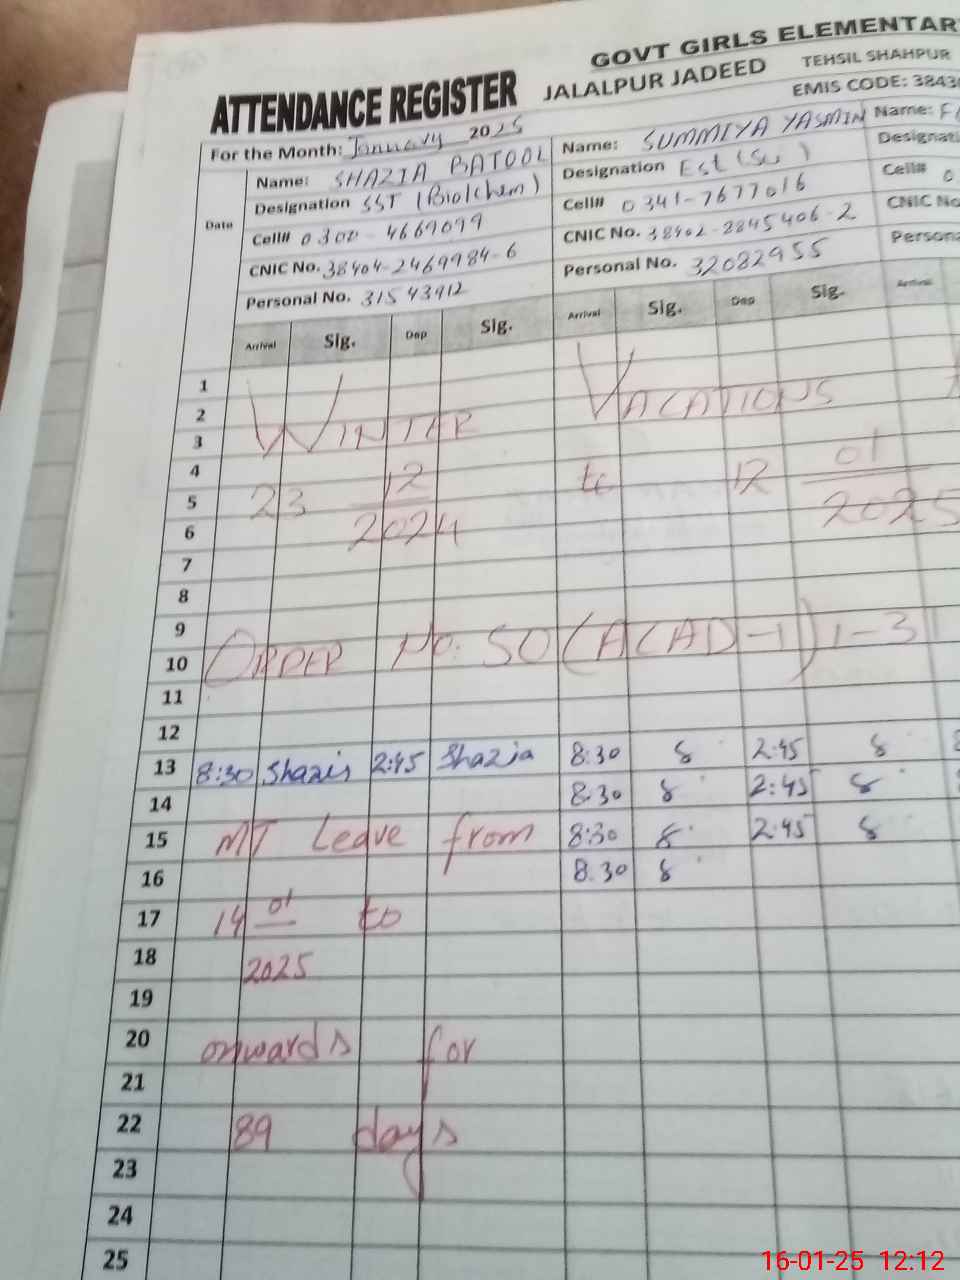 GOVT GIRLS ELEMENTAR
JALALPUR JADEED TEHSIL SHAHPUR
ATTENDANCE REGISTER EMIS CODE: 3843
For the Month: January 2025
Date
Name: SHAZIA BATOOL
Designation SST (Bio/chem)
Cell# 0300-4669099
CNIC No. 38404-2469984-6
Personal No. 31543912
Name: SUMMIYA YASMIN
Designation Est (Su)
Cell# 0341-7677016
CNIC No. 38402-2845406-2
Personal No. 32082955
Name: F
Designati
Cell# 0
CNIC No
Persona
Arrival Sig. Dep Sig. Arrival Sig. Dep Sig. Arrival
1
2 WINTER VACATIONS
3
4
5 23 12 2024 to 12 01 2025
6
7
8
9
10 ORDER No. SO(ACAD-1) 1-3
11
12
13 8:30 Shazia 2:45 Shazia 8:30 8 2:45 8
14 8:30 8 2:45 8
15 MT Leave from 8:30 8 2:45 8
16 8.30 8
17 14 01 to
18 2025
19
20 onwards for
21
22 89 days
23
24
25
16-01-25 12:12